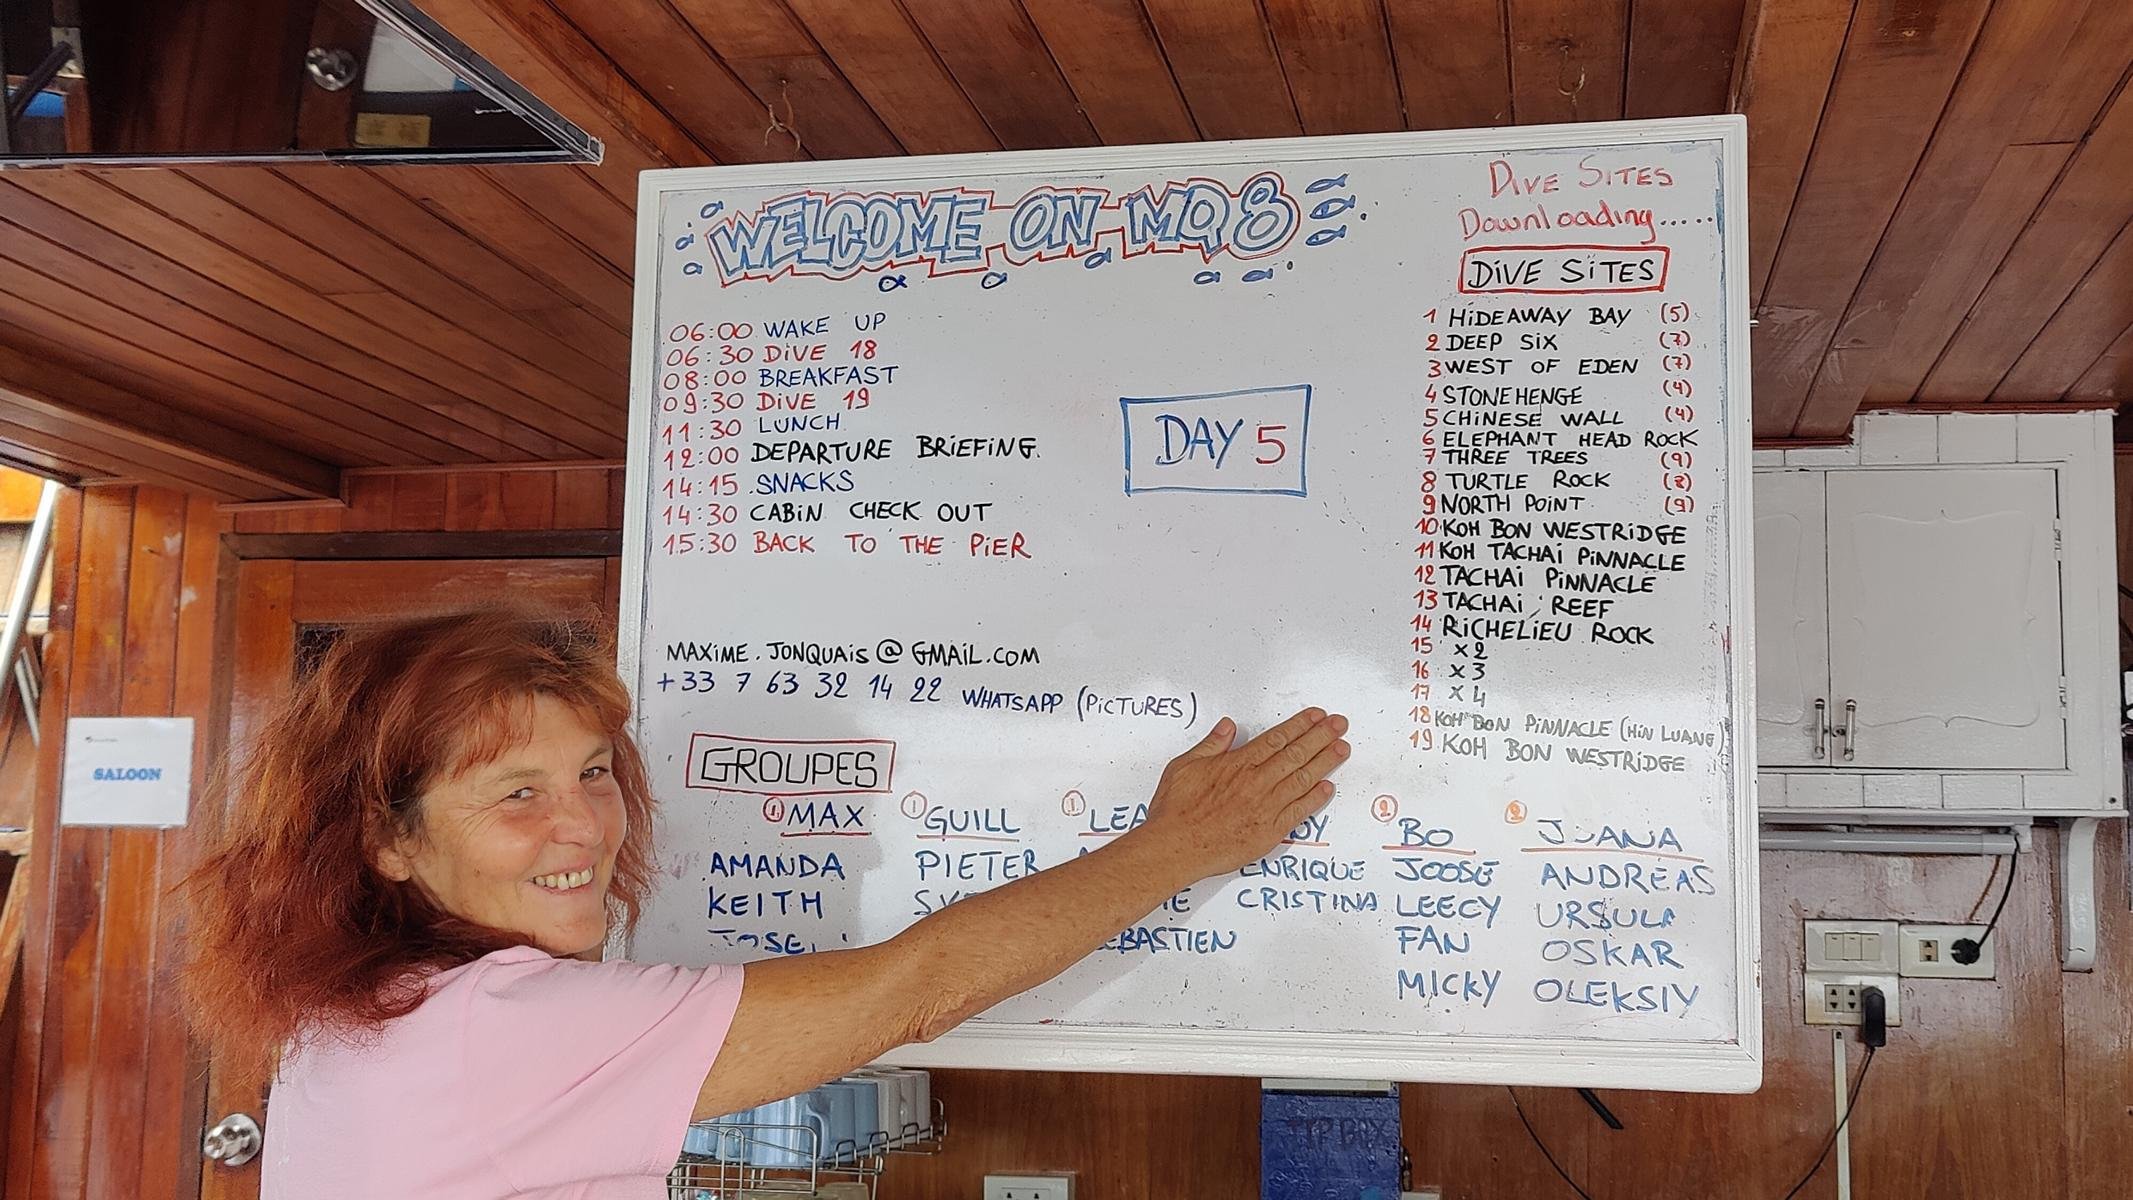 WELCOME ON MQ8
06:00 WAKE UP
06:30 DIVE 18
08:00 BREAKFAST
09:30 DIVE 19
11:30 LUNCH
12:00 DEPARTURE BRIEFING.
14:15 SNACKS
14:30 CABIN CHECK OUT
15:30 BACK TO THE PIER
DAY 5
MAXIME.JONQUAIS@GMAIL.COM
+33 7 63 32 14 22 WHATSAPP (PICTURES)
DIVE SITES
Downloading.....
DIVE SITES
1 HIDEAWAY BAY (5)
2 DEEP SIX (7)
3 WEST OF EDEN (7)
4 STONEHENGE (4)
5 CHINESE WALL (4)
6 ELEPHANT HEAD ROCK
7 THREE TREES (9)
8 TURTLE ROCK (8)
9 NORTH POINT (9)
10 KOH BON WESTRIDGE
11 KOH TACHAI PINNACLE
12 TACHAI PINNACLE
13 TACHAI REEF
14 RICHELIEU ROCK
15 x2
16 x3
17 x4
18 KOH BON PINNACLE (HIN LUANG)
19 KOH BON WESTRIDGE
GROUPES
1 MAX
AMANDA
KEITH
1 GUILL
PIETER
1 LEA
CRISTINA
2 BO
JOOSE
LEECY
FAN
MICKY
2 JUANA
ANDREAS
URSULA
OSKAR
OLEKSIY
SALOON
TIP BOX